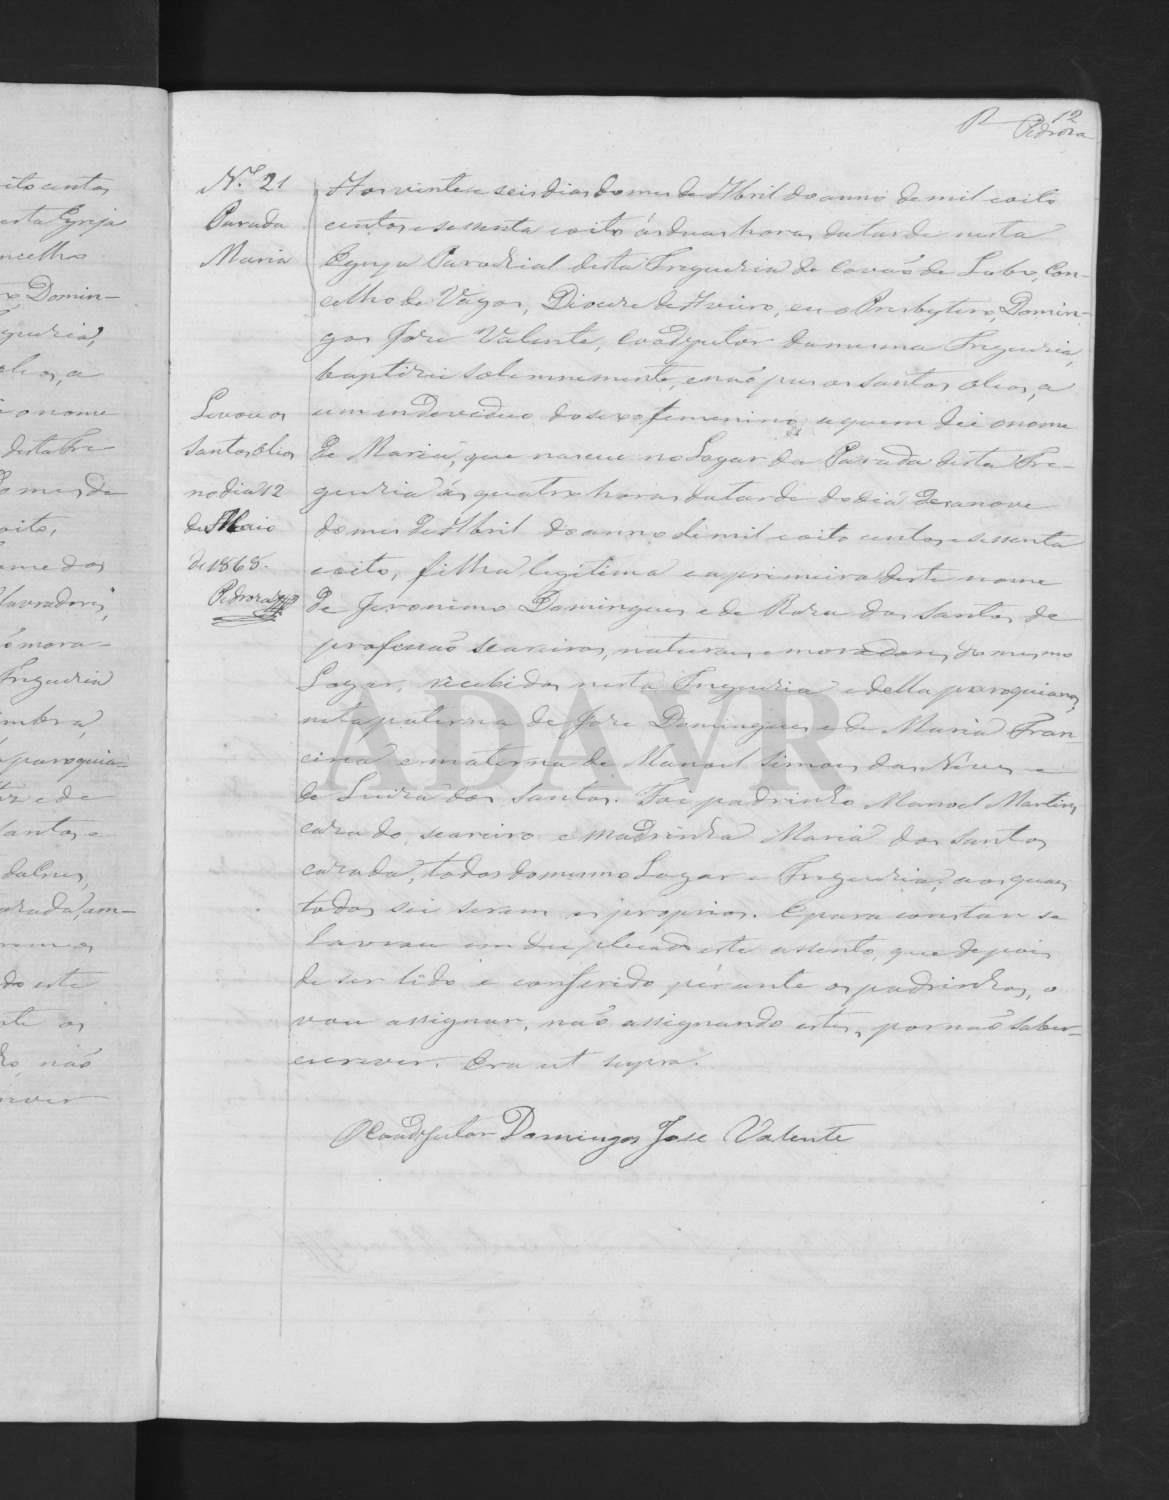 12
Pedroza
N.º 21
Parada
Maria
Levou os
Santos Oleos
no dia 12
de Maio
de 1868.
Pedroza
Aos vinte e seis dias do mes de Abril do anno de mil e oito
centos e sessenta e oito ás duas horas da tarde nesta
Egreja Parochial desta Freguezia de Covaõ do Lobo, Con-
celho de Vagos, Diocese de Aveiro, eu o Presbytero, Domin-
gos Jose Valente, Coadjutor da mesma Freguezia,
baptizei solemnemente, e naõ pus os santos oleos, a
um indeviduo do sexo femenino, a quem dei o nome
de Maria, que nasceu no Logar da Parada desta Fre-
guezia ás quatro horas da tarde do dia desanove
do mes de Abril do anno de mil e oito centos e sessenta
e oito, filha legitima e a primeira deste nome
de Jeronimo Domingues e de Roza dos Santos, de
profissaõ seareiros, naturaes e moradores, do mesmo
Logar, recebidos nesta Freguezia e della paroquianos,
neta paterna de Joze Domingues e de Maria Fran-
cisca e materna de Manoel Simoes das Neves e
de Luiza dos Santos. Foi padrinho Manoel Martins
cazado, seareiro e madrinha Maria dos Santos
cazada, todos do mesmo Logar e Freguezia, aos quaes
todos sei serem os proprios. E para constar se
lavrou em duplicado este assento, que depois
de ser lido e conferido perante os padrinhos, o
vou assignar, naõ assignando estes, por naõ saber-
escrever. Era ut supra.
O Coadjutor Domingos Jose Valente
oito centos
esta Egreja
ncelho
Domin-
guezia,
oleos, a
o nome
desta Fre
do mes de
oito,
ome dos
lavradores,
mora-
Freguezia
imbra,
paroquia-
e de
Santos e
cazada, am-
do este
os
naõ
ADAVR